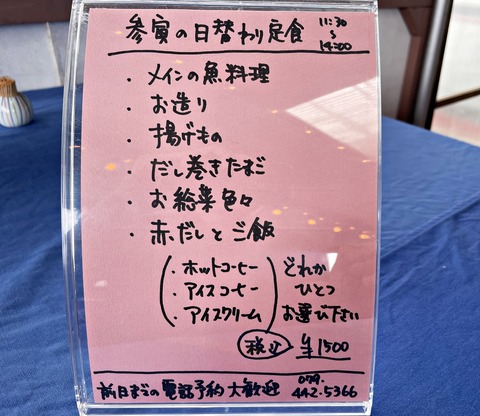 参寅の日替わり定食 11:30～14:00
・メインの魚料理
・お造り
・揚げもの
・だし巻きたまご
・お総菜色々
・赤だしとご飯
・ホットコーヒー
・アイスコーヒー
・アイスクリーム
どれか
ひとつ
お選び下さい
税込 ¥1500
前日までの電話予約大歓迎 079.442.5366